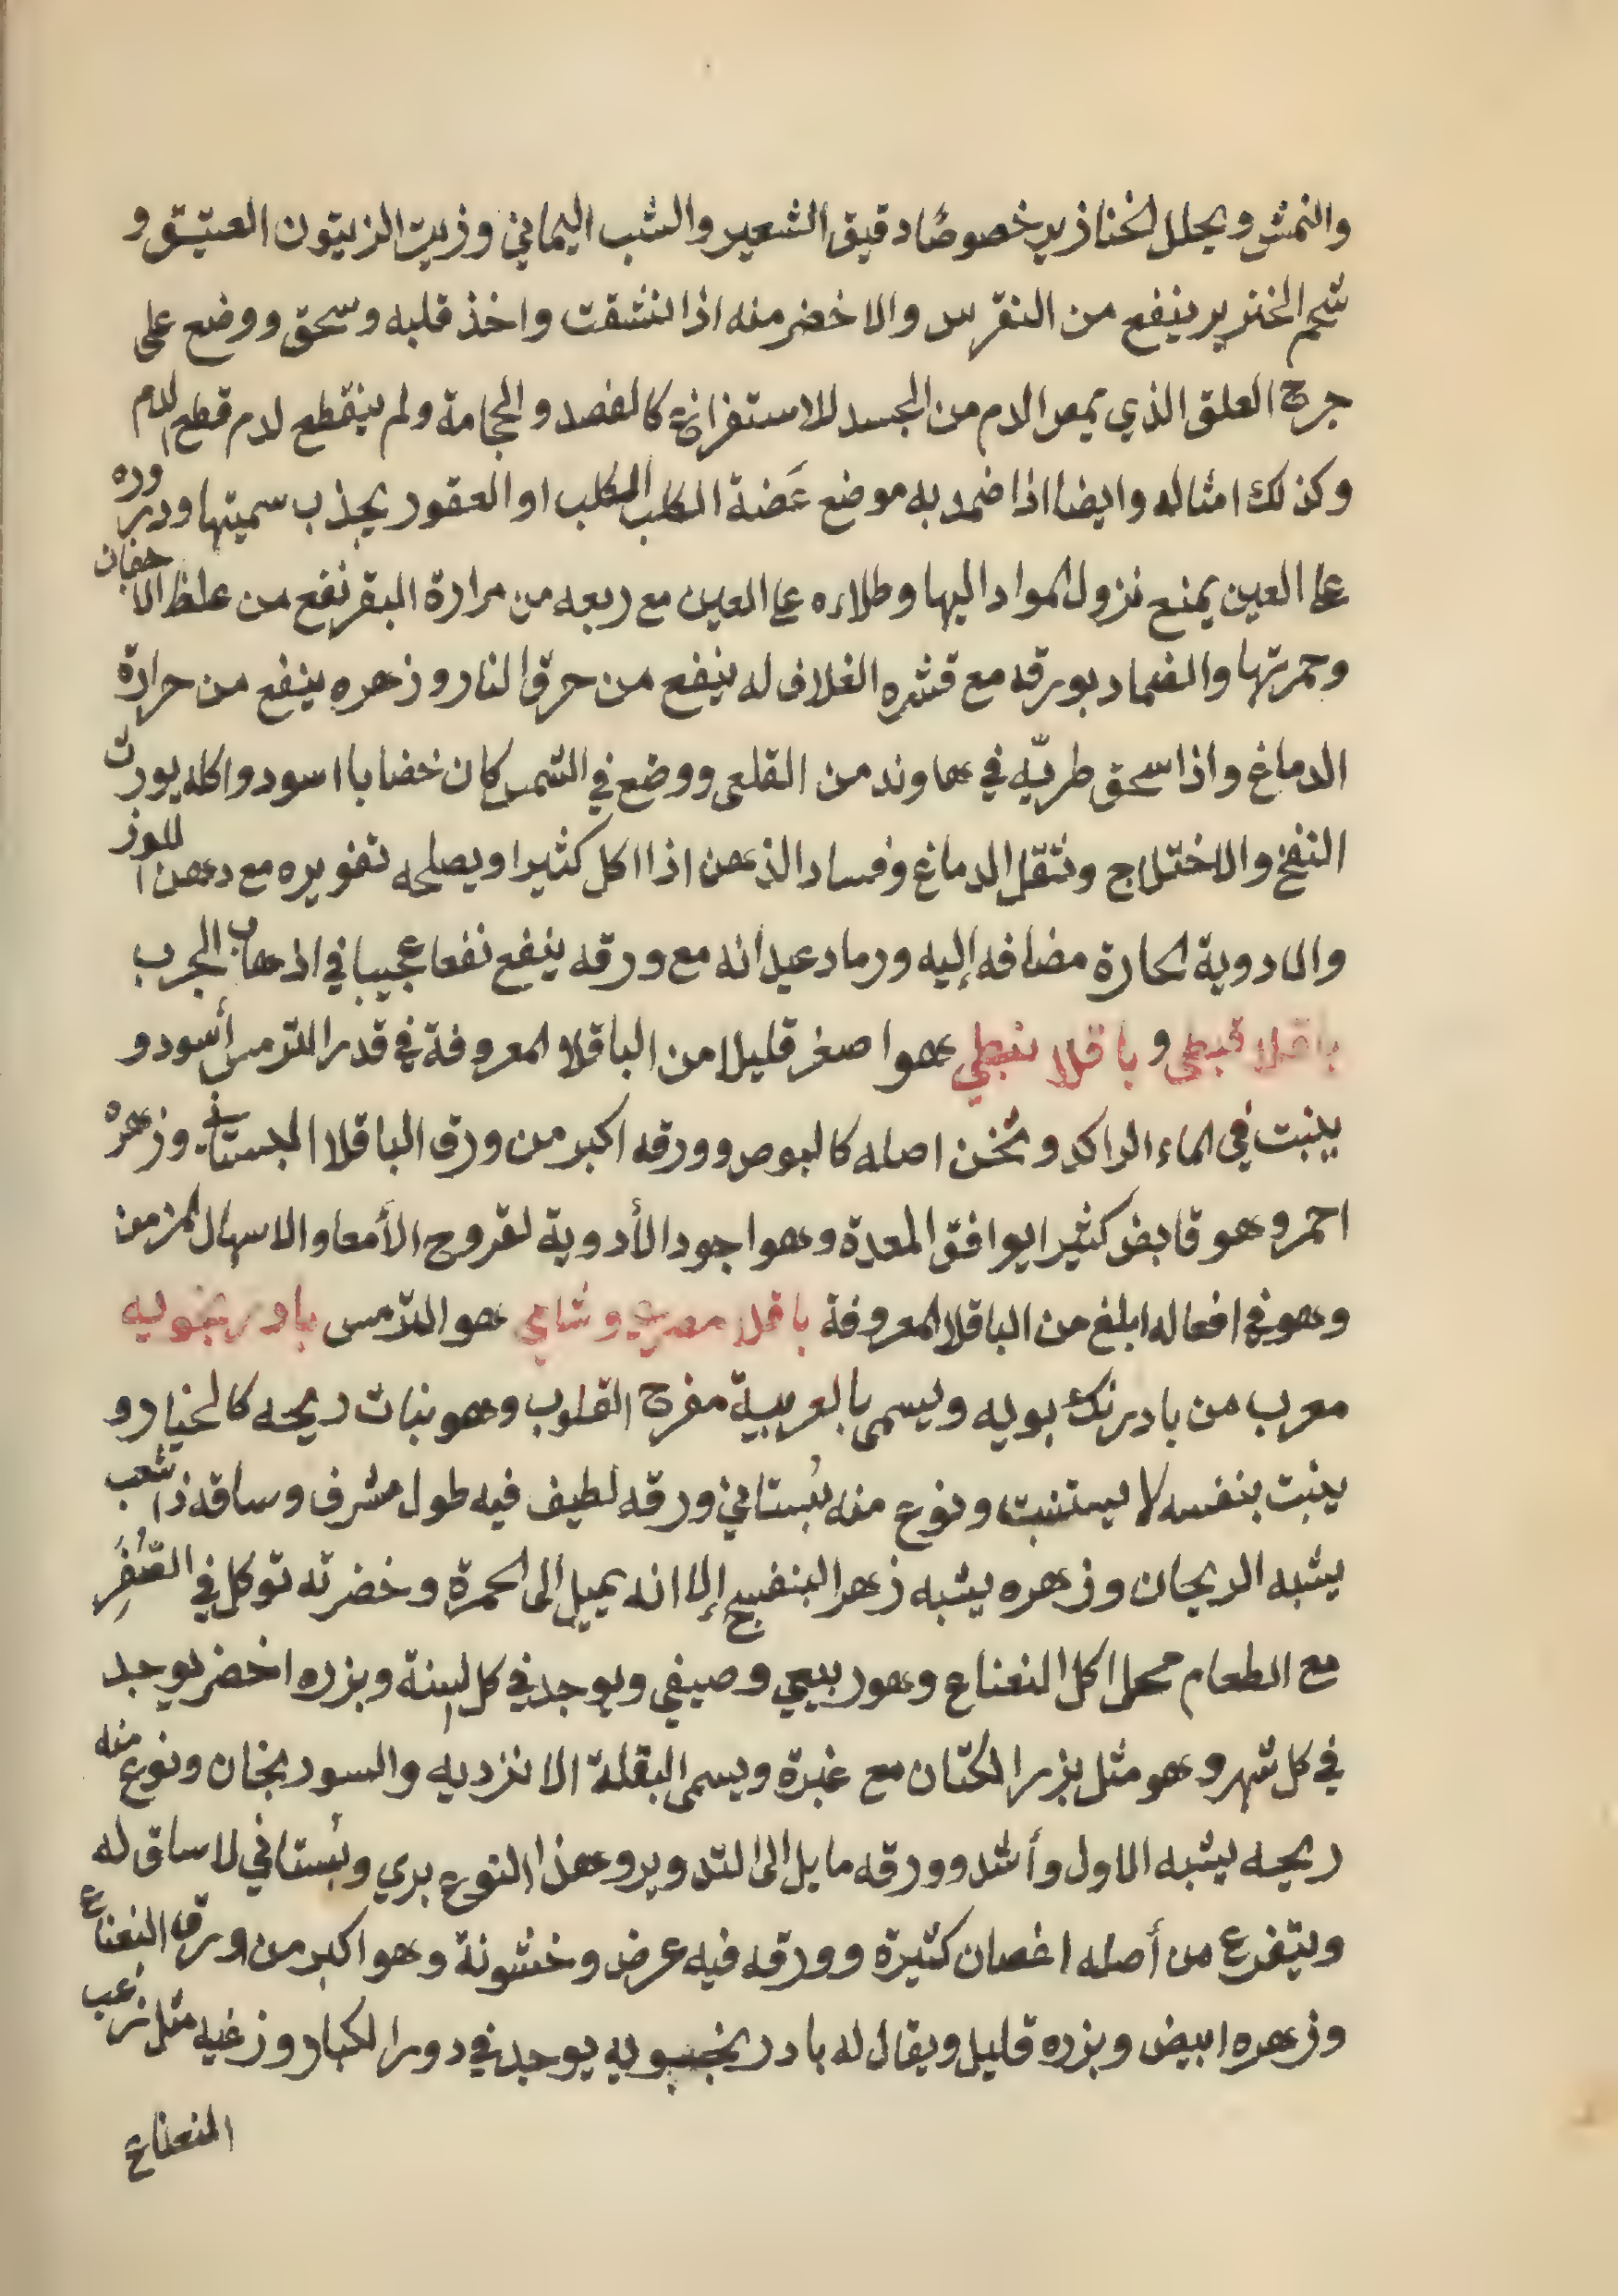 والنمش ويحلل الخنازير خصوصًا دقيق الشعير والشب اليماني وزيت الزيتون العتيق و
شحم الخنزير ينفع من النقرس والاخضر منه اذا نشقت واخذ قلبه وسحق ووضع على
جرح العلق الذي يمص الدم من الجسد للاستفراغ كالفصد والحجامة ولم ينقطع لدم قطع الدم
وكذلك امثاله وايضا اذا ضمد به موضع عَضة الكلب المكلب او العقور يجذب سميتها ودروره
على العين يمنع نزول المواد اليها وطلاءه على العين مع ربعه من مرارة البقر نفع من غلظ الاجفان
وحمرتها والضماد بورقه مع قشره الغلاف له ينفع من حرق النار وزهره ينفع من حرارة
الدماغ واذا سحق طريّه في هاوند من القلعى ووضع في الشمس كان خضابا اسود واكله يورث
النفخ والاختلاج وثقل الدماغ وفساد الذهن اذا اكل كثيرا ويصلحه تقويره مع دهن اللوز
والادوية الحارة مضافه إليه ورماد عيدانه مع ورقه ينفع نفعا عجيبا في اذهاب الجرب
باقلا قبطى و باقلا نبطي هو اصغر قليلا من الباقلا المعروفة في قدر الترمس أسود و
ينبت في الماء الراكد وثخن اصله كالبوص وورقه اكبر من ورق الباقلا البستاني وزهره
احمر وهو قابض كثيرا يوافق المعدة وهو اجود الأدوية لقروح الأمعا والاسهال المزمن
وهو في افعاله ابلغ من الباقلا المعروفة باقلا مصرى وشامي هو الترمس بادرنجبويه
معرب من بادرنك بويه ويسمى بالعربية مفرح القلوب وهو نبات ريحه كالخيار و
ينبت بنفسه لا يستنبت ونوع منه بُستاني ورقه لطيف فيه طول مشرف وساقه ذا شعب
يشبه الريحان وزهره يشبه زهر البنفسج إلا انه يميل الى الحمرة وخضرته توكل في الصُفَرِ
مع الطعام محل اكل النعناع وهو ربيعي وصيفي ويوجد في كل السنة وبزره اخضر يوجد
في كل شهر وهو مثل بزر الكتان مع غبرة ويسمى البقلة الانزديه والسوريخان ونوع منه
ريحه يشبه الاول وأشد وورقه مايل الى التدوير وهذا النوع بري وبُستاني لا ساق له
ويتفرع من أصله اغصان كثيرة وورقه فيه عرض وخشونة وهو اكبر من ورق النعناع
وزهره ابيض وبزره قليل ويقال له بادرنجبويه يوجد في دور الكبار وزغبه مثل زغب
النعناع